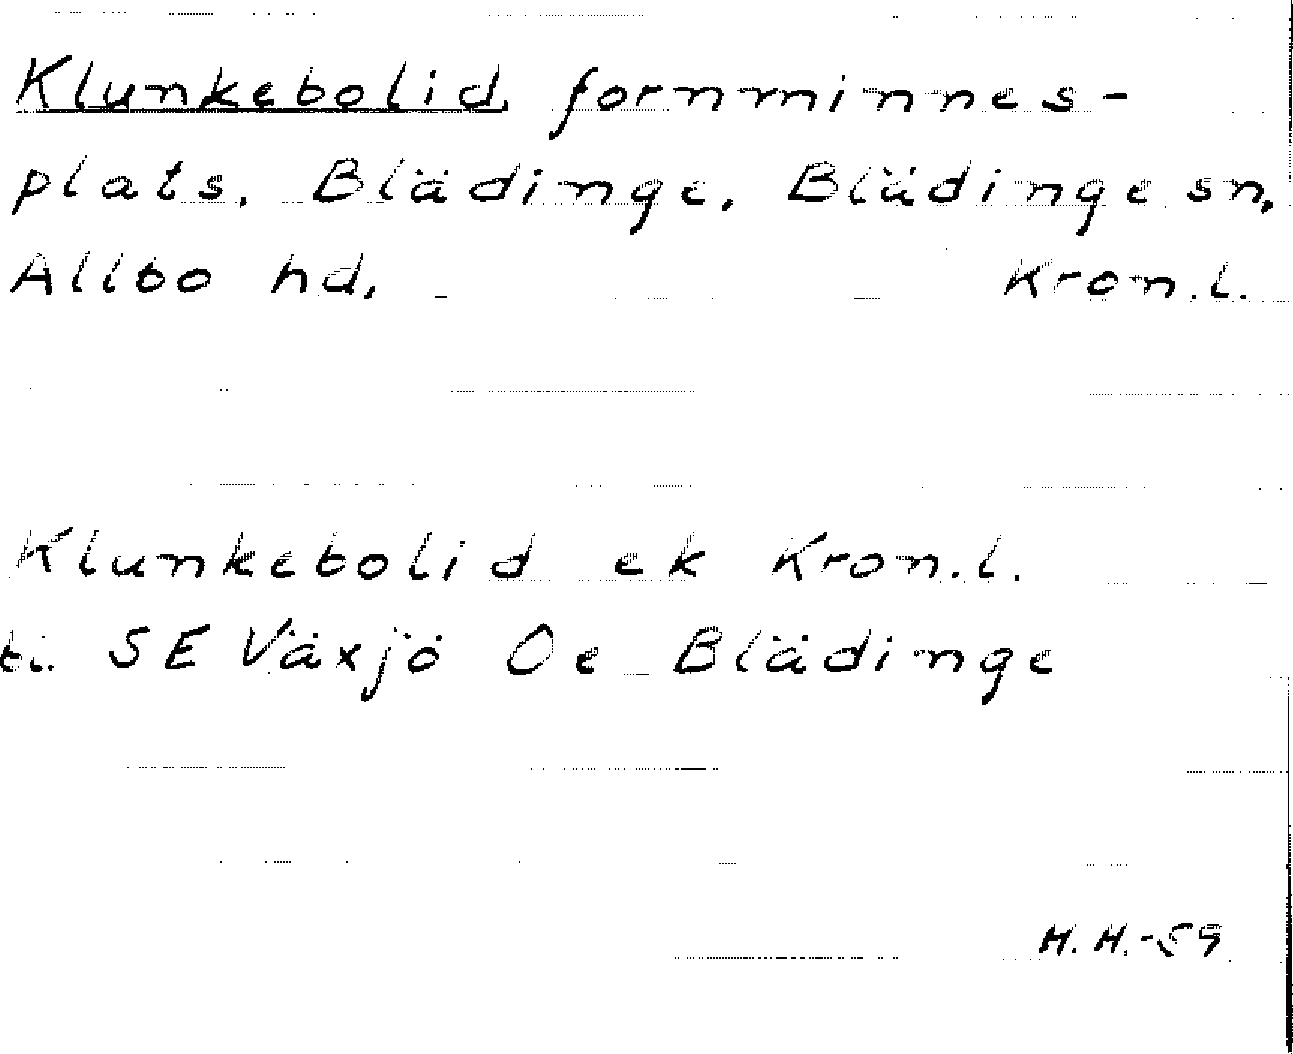 Klunkebolid, fornminnes-
plats, Blädinge, Blädinge sn,
Allbo hd, Kron.l.
Klunkebolid ek Kron.l.
ti. SE Växjö Oe Blädinge
H.H.-59